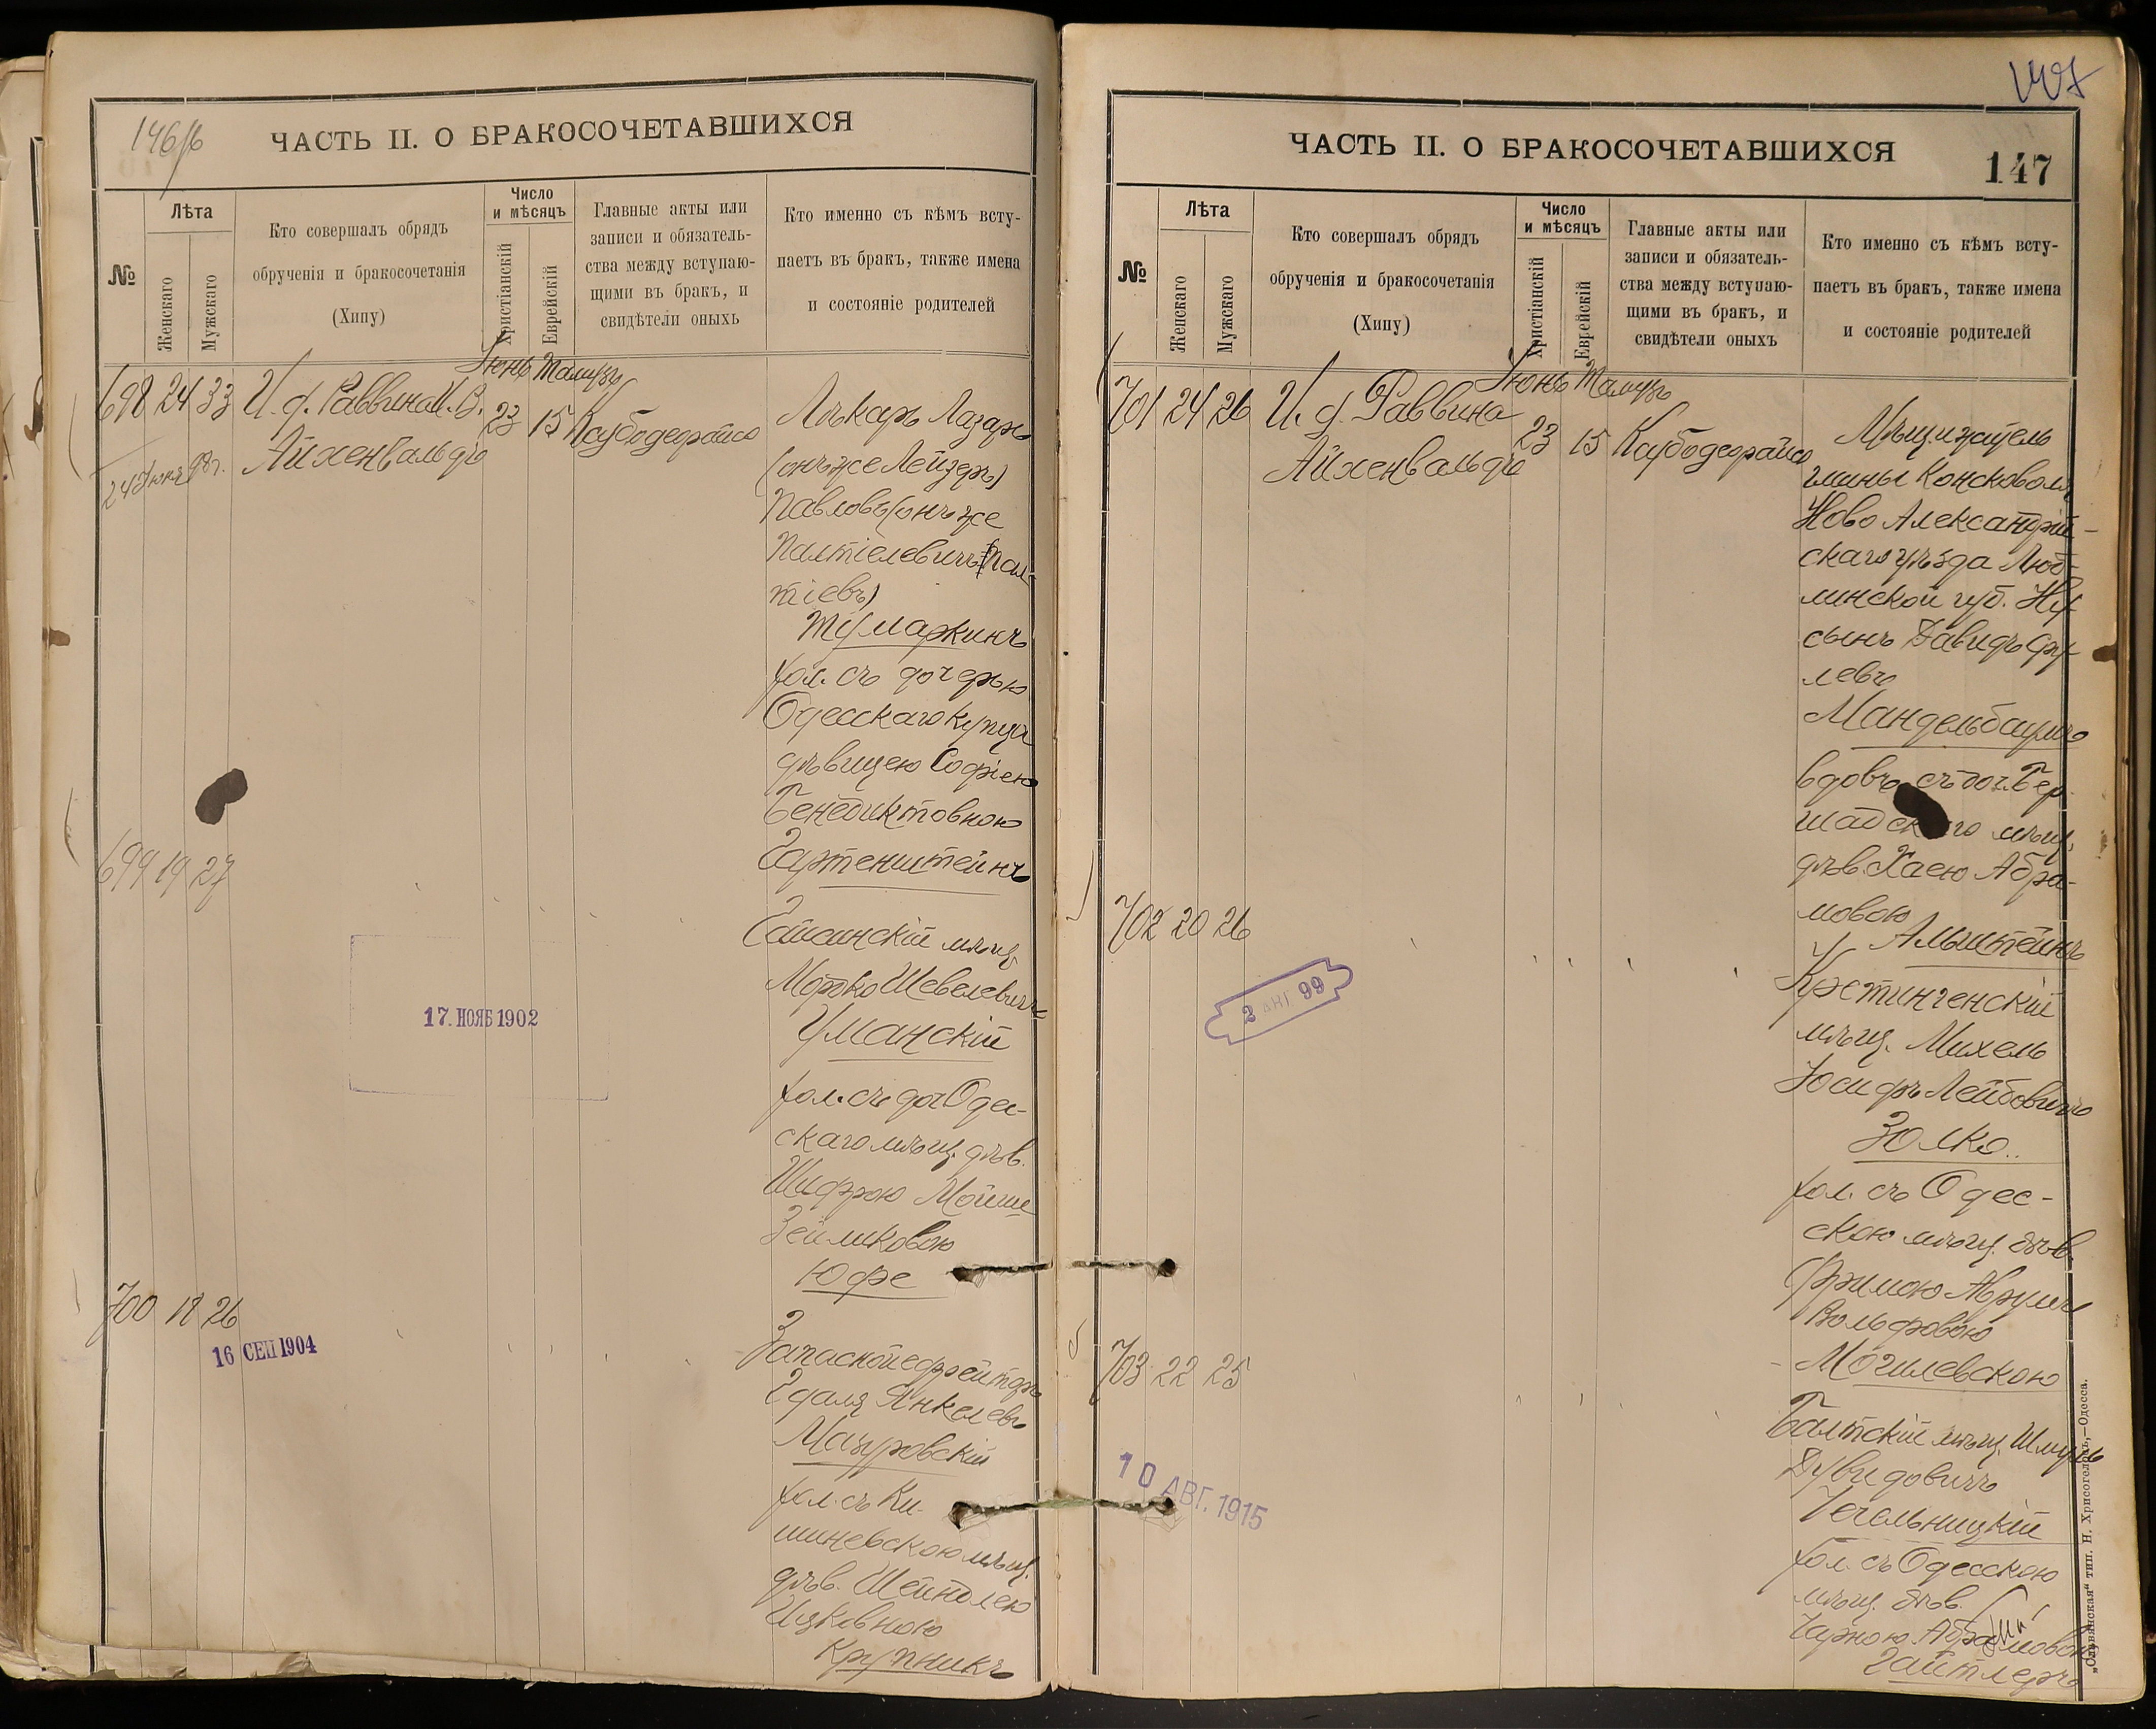 146/б
ЧАСТЬ II. О БРАКОСОЧЕТАВШИХСЯ
№
Лѣта
Женскаго
Мужскаго
Кто совершалъ обрядъ
обрученія и бракосочетанія
(Хипу)
Число
и мѣсяцъ
Христіанскій
Еврейскій
Главные акты или
записи и обязатель-
ства между вступаю-
щими въ бракъ, и
свидѣтели оныхъ
Кто именно съ кѣмъ всту-
паетъ въ бракъ, также имена
и состояніе родителей
Іюнь Тамузъ
698 24 33 И. д. Раввина И. В. 23 15 Каубодеорайсо
Айхенвальдъ
24 Іюня 98 г.
Лѣкарь Лазарь
(онъ же Лейзеръ)
Павловъ (онъ же
Палтіелевичъ Пал-
тіевъ)
Тумаркинъ
хол. съ дочерью
Одесскаго купца
дѣвицею Софіею
Бенедиктовною
Гартенштейнъ
699 19 27
Гайсинскій мѣщ.
Мордко Шевелевичъ
Уманскій
17. НОЯБ 1902
хол. съ доч Одес-
скаго мѣщ. дѣв.
Шифрою Мойше
Зейликовою
Юфе
700 18 26
16 СЕП 1904
Запасной ефрейторъ
Гдаля Янкелевъ
Мазуровскій
хол. съ Ки-
шиневскою мѣщ.
дѣв. Шейндлею
Ицковною
Крупникъ
147
ЧАСТЬ II. О БРАКОСОЧЕТАВШИХСЯ
147
№
Лѣта
Женскаго
Мужскаго
Кто совершалъ обрядъ
обрученія и бракосочетанія
(Хипу)
Число
и мѣсяцъ
Христіанскій
Еврейскій
Главные акты или
записи и обязатель-
ства между вступаю-
щими въ бракъ, и
свидѣтели оныхъ
Кто именно съ кѣмъ всту-
паетъ въ бракъ, также имена
и состояніе родителей
Іюнь Тамузъ
701 24 26 И. д. Раввина 23 15 Каубодеорайсо
Айхенвальдъ
Мѣщ. житель
гмины Консковоля
Ново Александрій-
скаго уѣзда Люб-
линской губ. Ну-
сынъ Давидъ Сру-
левъ
Мандельбаумъ
вдовъ съ доч. Бер-
шадскаго мѣщ.
дѣв. Хаею Абра-
мовою
Альштейнъ
702 20 26
2 АВГ 99
Кретингенскій
мѣщ. Михель
Іосифъ Лейбовичъ
Золко
хол. съ Одес-
скою мѣщ. дѣв.
Фримою Абрумъ
Вольфовою
Могилевскою
703 22 25
10 АВГ. 1915
Балтскій мѣщ. Шмуль
Дувидовичъ
Чечельницкій
хол. съ Одесскою
мѣщ. дѣв.
Чарною Абрамовою
Гайтлеръ
„Славянская“ тип. Н. Хрисогелосъ,—Одесса.